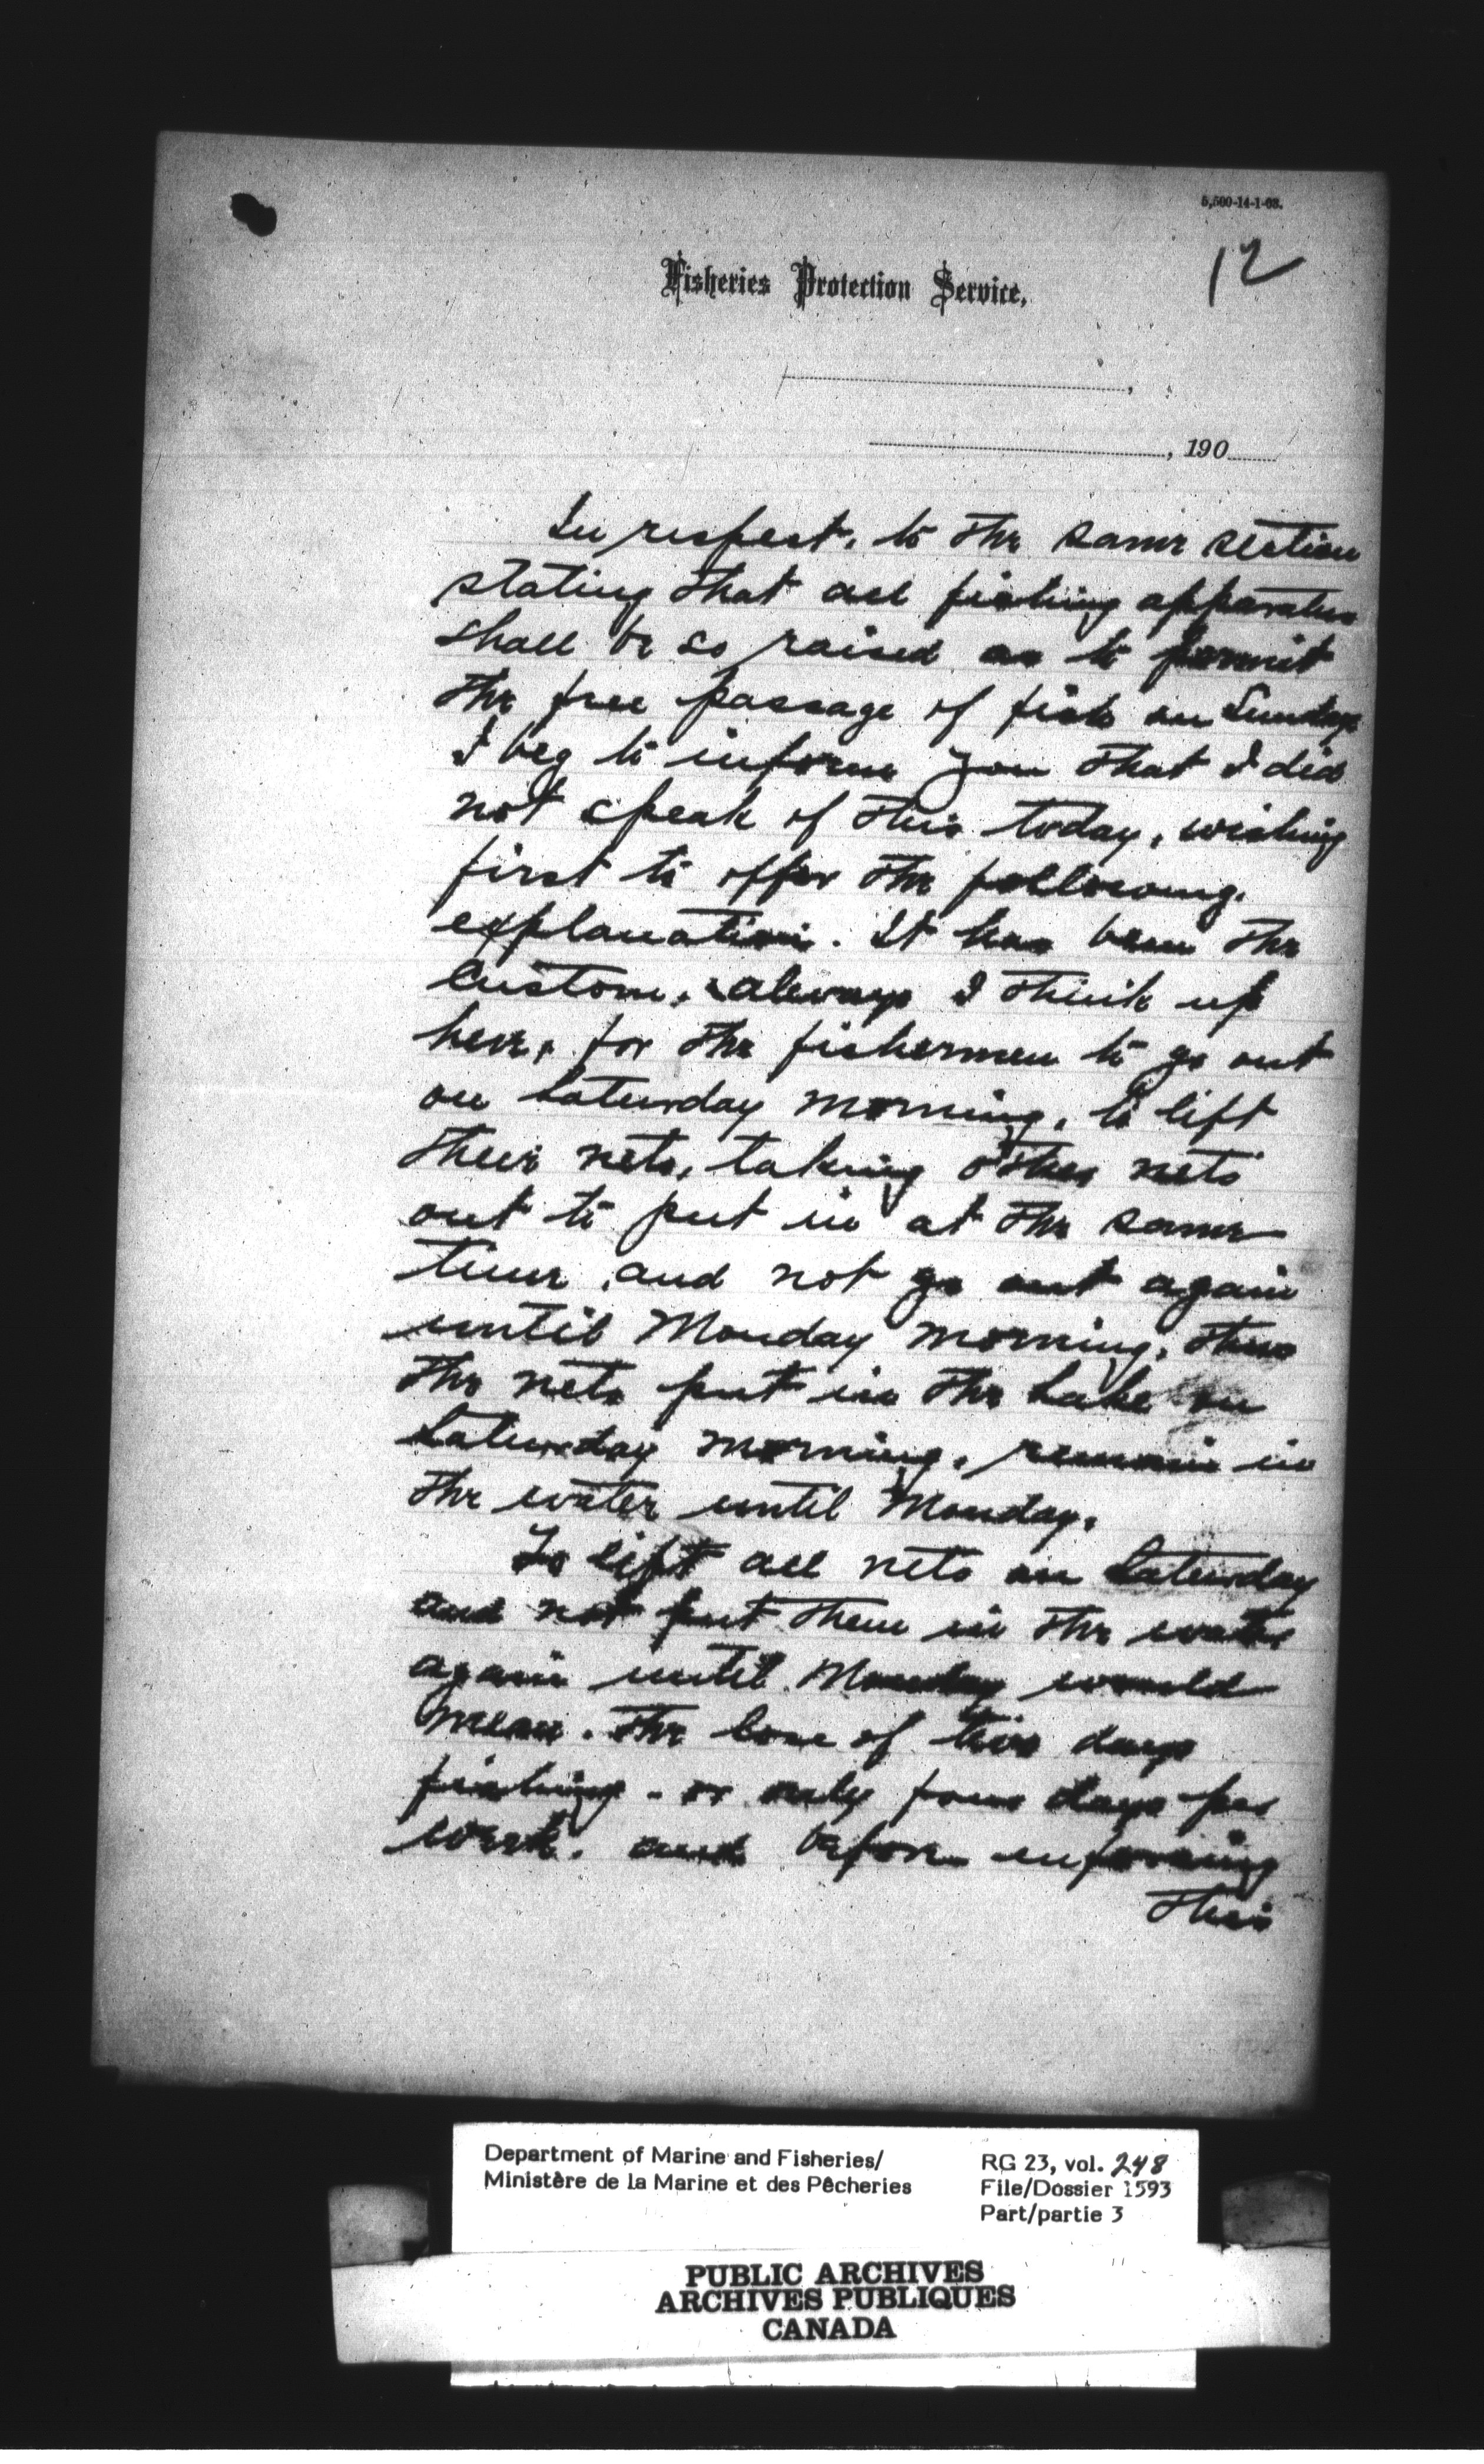 5,500-14-1-03.
12
Fisheries Protection Service,
, 190
In respect, to the same section
stating that all fishing apparatus
shall be so raised as to permit
the free passage of fish on Sunday
I beg to inform you that I did
not speak of this today, wishing
first to offer the following.
explanation. It has been the
custom, always I think up
here, for the fishermen to go out
on Saturday morning, to lift
their nets, taking other nets
out to put in at the same
time, and not go out again
until Monday morning, thus
the nets put in the Lake on
Saturday morning, remain in
the water until Monday.
To lift all nets on Saturday
and not put them in the water
again until Monday would
mean. The loss of two days
fishing - or only four days per
week. and before enforcing
this
Department of Marine and Fisheries/
Ministère de la Marine et des Pêcheries
RG 23, vol. 248
File/Dossier 1593
Part/partie 3
PUBLIC ARCHIVES
ARCHIVES PUBLIQUES
CANADA